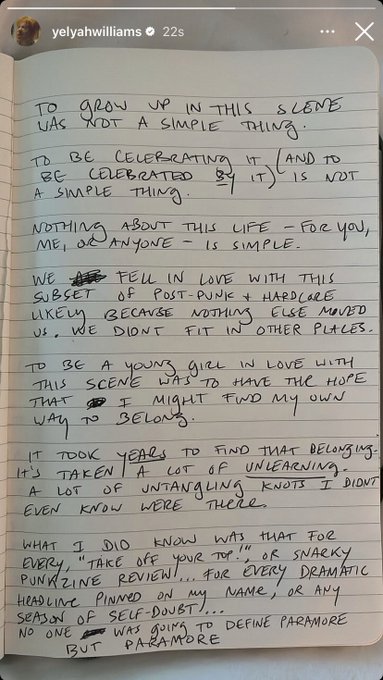 yelyahwilliams 22s
TO GROW UP IN THIS SCENE
WAS NOT A SIMPLE THING.
TO BE CELEBRATING IT (AND TO
BE CELEBRATED BY IT) IS NOT
A SIMPLE THING.
NOTHING ABOUT THIS LIFE - FOR YOU,
ME, OR ANYONE - IS SIMPLE.
WE FELL IN LOVE WITH THIS
SUBSET OF POST-PUNK + HARDCORE
LIKELY BECAUSE NOTHING ELSE MOVED
US. WE DIDNT FIT IN OTHER PLACES.
TO BE A YOUNG GIRL IN LOVE WITH
THIS SCENE WAS TO HAVE THE HOPE
THAT I MIGHT FIND MY OWN
WAY TO BELONG.
IT TOOK YEARS TO FIND THAT BELONGING.
IT'S TAKEN A LOT OF UNLEARNING.
A LOT OF UNTANGLING KNOTS I DIDNT
EVEN KNOW WERE THERE.
WHAT I DID KNOW WAS THAT FOR
EVERY, "TAKE OFF YOUR TOP!", OR SNARKY
PUNKZINE REVIEW... FOR EVERY DRAMATIC
HEADLINE PINNED ON MY NAME, OR ANY
SEASON OF SELF-DOUBT...
NO ONE WAS GOING TO DEFINE PARAMORE
BUT PARAMORE